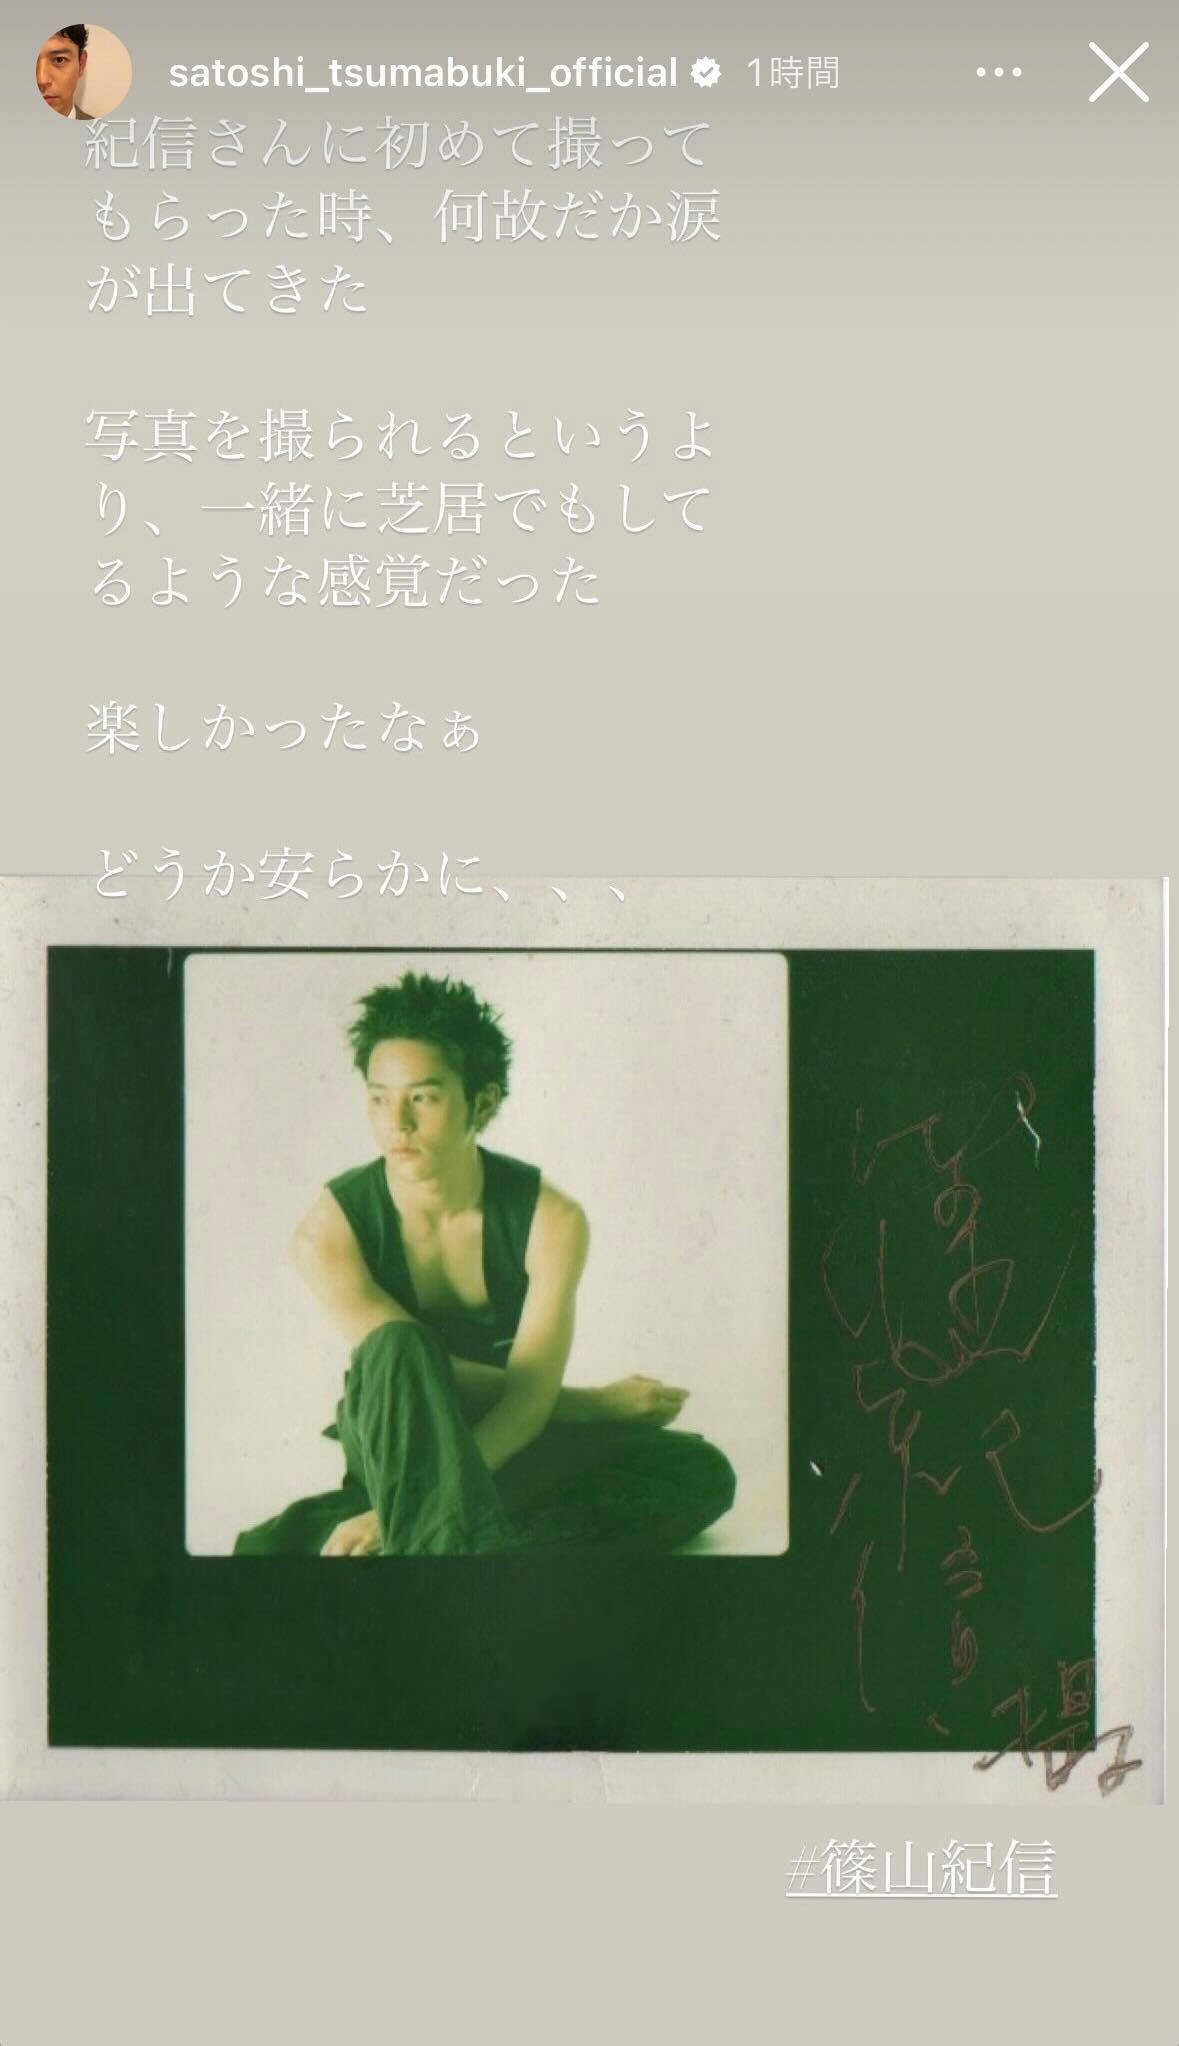 satoshi_tsumabuki_official 1時間
紀信さんに初めて撮って
もらった時、何故だか涙
が出てきた
写真を撮られるというよ
り、一緒に芝居でもして
るような感覚だった
楽しかったなぁ
どうか安らかに、、、
篠山紀信
撮
#篠山紀信